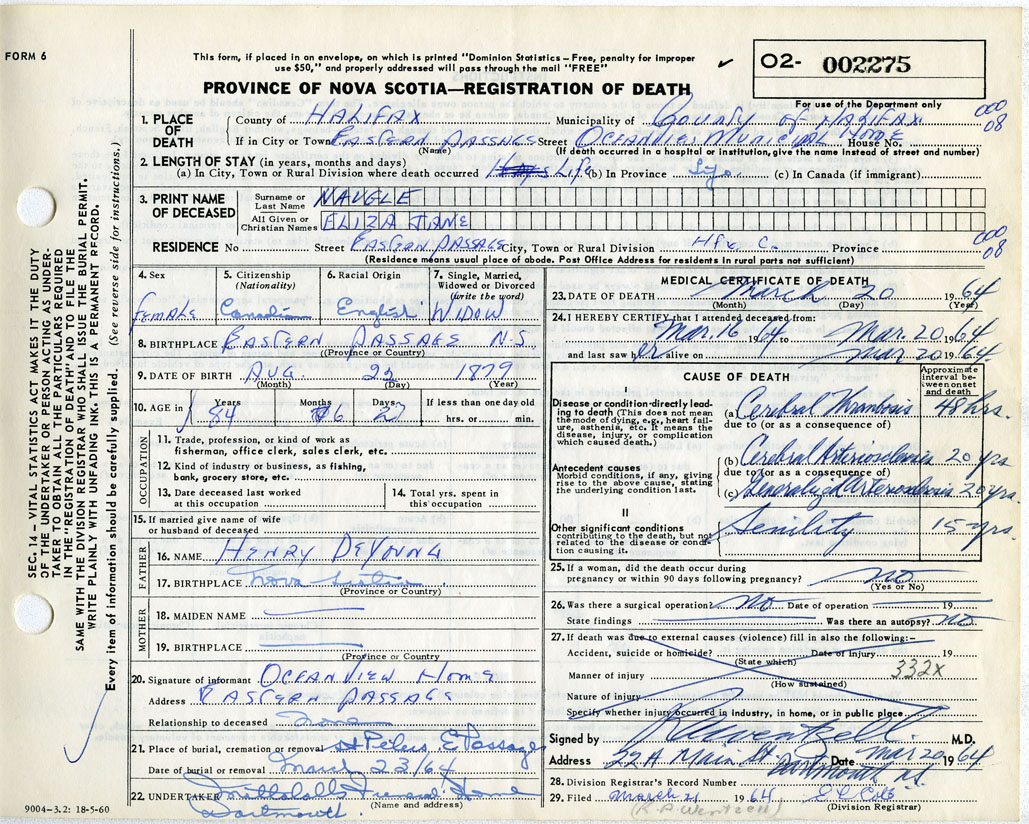 FORM 6
This form, if placed in an envelope, on which is printed "Dominion Statistics – Free, penalty for improper
use $50," and properly addressed will pass through the mail "FREE"
O2- 002275
PROVINCE OF NOVA SCOTIA—REGISTRATION OF DEATH
For use of the Department only
000
08
1. PLACE OF DEATH
County of HALIFAX Municipality of COUNTY OF HALIFAX
If in City or Town EASTERN PASSAGE Street OCEANVIEW MUNICIPAL HOME House No.
(Name) (If death occurred in a hospital or institution, give the name instead of street and number)
2. LENGTH OF STAY (in years, months and days)
(a) In City, Town or Rural Division where death occurred Life (b) In Province Life (c) In Canada (if immigrant)
3. PRINT NAME OF DECEASED
Surname or Last Name MAUGLE
All Given or Christian Names ELIZA JANE
RESIDENCE No Street EASTERN PASSAGE City, Town or Rural Division Hfx. C. Province
000
08
(Residence means usual place of abode. Post Office Address for residents in rural parts not sufficient)
4. Sex FEMALE
5. Citizenship (Nationality) Canadian
6. Racial Origin English
7. Single, Married, Widowed or Divorced (write the word) WIDOW
8. BIRTHPLACE EASTERN PASSAGE N.S.
(Province or Country)
9. DATE OF BIRTH AUG. 22 1879
(Month) (Day) (Year)
10. AGE in Years 84 Months 6 Days 27 If less than one day old hrs. or min.
OCCUPATION
11. Trade, profession, or kind of work as
fisherman, office clerk, sales clerk, etc.
12. Kind of industry or business, as fishing,
bank, grocery store, etc.
13. Date deceased last worked
at this occupation
14. Total yrs. spent in
this occupation
15. If married give name of wife
or husband of deceased
FATHER
16. NAME HENRY DEYOUNG
17. BIRTHPLACE Nova Scotia
(Province or Country)
MOTHER
18. MAIDEN NAME
19. BIRTHPLACE
(Province or Country
20. Signature of informant OCEANVIEW HOME
Address EASTERN PASSAGE
Relationship to deceased None
21. Place of burial, cremation or removal St Peters, E Passage
Date of burial or removal March 23/64
22. UNDERTAKER Funeral Home
(Name and address)
Dartmouth
9004–3.2: 18-5-60
MEDICAL CERTIFICATE OF DEATH
23. DATE OF DEATH March 20 1964
(Month) (Day) (Year)
24. I HEREBY CERTIFY that I attended deceased from:
Mar. 16 1964 to Mar. 20 1964
and last saw her alive on Mar 20 1964
CAUSE OF DEATH
Approximate interval between onset and death
I
Disease or condition directly leading to death (This does not mean the mode of dying, e.g., heart failure, asthenia, etc. It means the disease, injury, or complication which caused death.)
(a) Cerebral Thrombosis 48 hrs.
due to (or as a consequence of)
Antecedent causes
Morbid conditions, if any, giving rise to the above cause, stating the underlying condition last.
(b) Cerebral Arteriosclerosis 20 yrs
due to (or as a consequence of)
(c) Generalized Arteriosclerosis 20 yrs.
II
Other significant conditions contributing to the death, but not related to the disease or condition causing it.
Senility 15 yrs.
25. If a woman, did the death occur during
pregnancy or within 90 days following pregnancy? no
(Yes or No)
26. Was there a surgical operation? no Date of operation 19
State findings Was there an autopsy? no
27. If death was due to external causes (violence) fill in also the following:–
Accident, suicide or homicide? Date of injury 19
(State which)
Manner of injury 332X
(How sustained)
Nature of injury
Specify whether injury occurred in industry, in home, or in public place
Signed by M.D.
Address 22A Main St Date Mar 20 1964
Dartmouth N.S.
28. Division Registrar's Record Number
29. Filed March 21 1964
(Division Registrar)
(R.A. Wentzell)
SEC. 14 – VITAL STATISTICS ACT MAKES IT THE DUTY
OF THE UNDERTAKER OR PERSON ACTING AS UNDER-
TAKER TO OBTAIN ALL THE PARTICULARS REQUIRED
IN THE "REGISTRATION OF DEATH" AND TO FILE THE
SAME WITH THE DIVISION REGISTRAR WHO SHALL ISSUE THE BURIAL PERMIT.
WRITE PLAINLY WITH UNFADING INK. THIS IS A PERMANENT RECORD.
Every item of information should be carefully supplied. (See reverse side for instructions.)